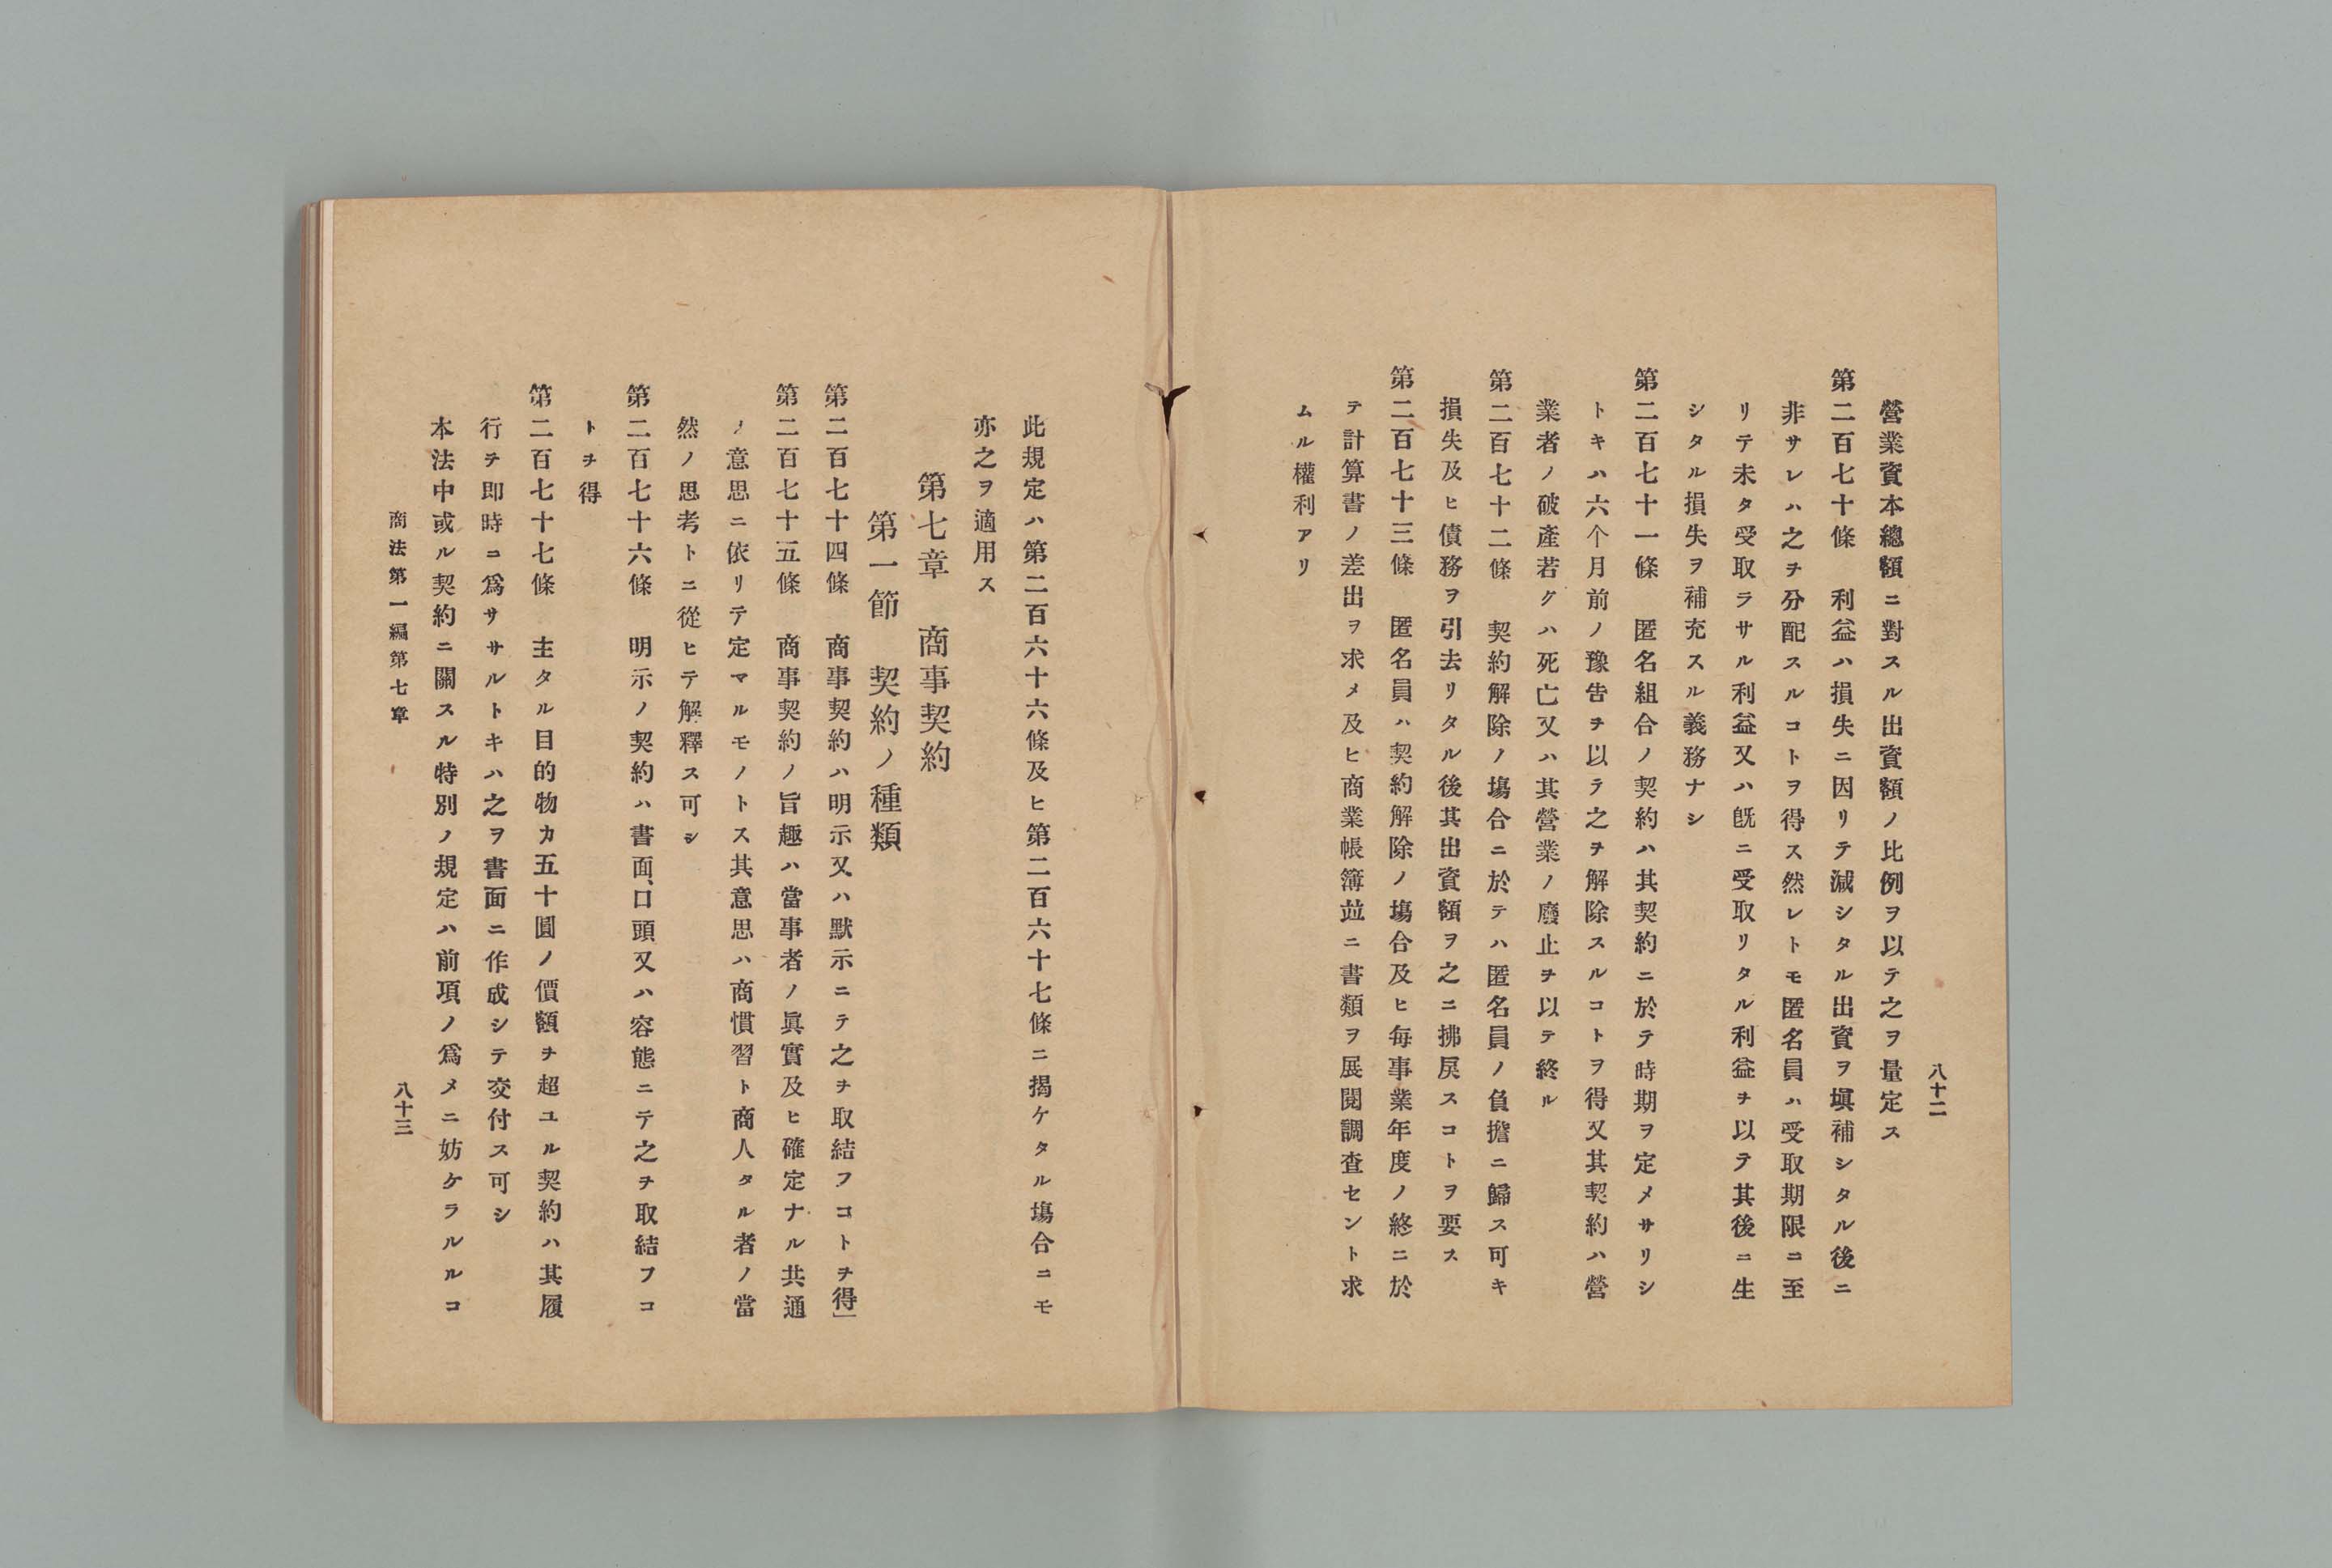 八十二
營業資本總額ニ對スル出資額ノ比例ヲ以テ之ヲ量定ス
第二百七十條　利益ハ損失ニ因リテ減シタル出資ヲ塡補シタル後ニ
非サレハ之ヲ分配スルコトヲ得ス然レトモ匿名員ハ受取期限ニ至
リテ未タ受取ラサル利益又ハ既ニ受取リタル利益ヲ以テ其後ニ生
シタル損失ヲ補充スル義務ナシ
第二百七十一條　匿名組合ノ契約ハ其契約ニ於テ時期ヲ定メサリシ
トキハ六个月前ノ豫吿ヲ以テ之ヲ解除スルコトヲ得又其契約ハ營
業者ノ破產若クハ死亡又ハ其營業ノ廢止ヲ以テ終ル
第二百七十二條　契約解除ノ塲合ニ於テハ匿名員ノ負擔ニ歸ス可キ
損失及ヒ債務ヲ引去リタル後其出資額ヲ之ニ拂戾スコトヲ要ス
第二百七十三條　匿名員ハ契約解除ノ塲合及ヒ每事業年度ノ終ニ於
テ計算書ノ差出ヲ求メ及ヒ商業帳簿並ニ書類ヲ展閱調査セント求
ムル權利アリ
此規定ハ第二百六十六條及ヒ第二百六十七條ニ揭ケタル塲合ニモ
亦之ヲ適用ス
第七章　商事契約
第一節　契約ノ種類
第二百七十四條　商事契約ハ明示又ハ默示ニテ之ヲ取結フコトヲ得」
第二百七十五條　商事契約ノ旨趣ハ當事者ノ眞實及ヒ確定ナル共通
ノ意思ニ依リテ定マルモノトス其意思ハ商慣習ト商人タル者ノ當
然ノ思考トニ從ヒテ解釋ス可シ
第二百七十六條　明示ノ契約ハ書面、口頭又ハ容態ニテ之ヲ取結フコ
トヲ得
第二百七十七條　主タル目的物カ五十圓ノ價額ヲ超ユル契約ハ其履
行ヲ即時ニ爲サヽルトキハ之ヲ書面ニ作成シテ交付ス可シ
本法中或ル契約ニ關スル特別ノ規定ハ前項ノ爲メニ妨ケラルルコ
商法第一編第七章
八十三